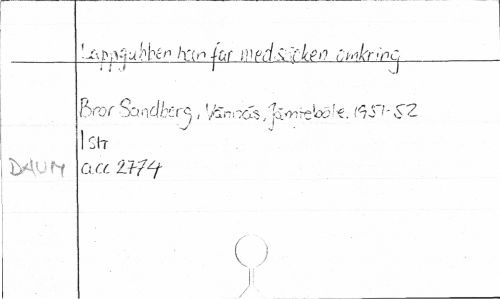 Lappgubben han far med säcken omkring
Bror Sandberg, Vännäs, Jämteböle. 1951-52
1 str
DAUM acc 2774